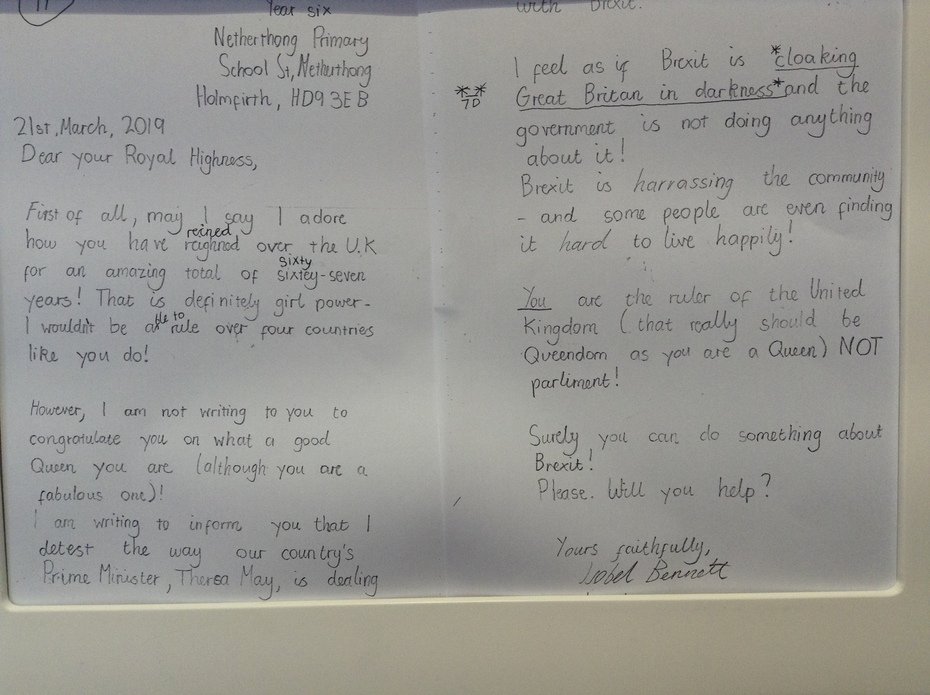 11
Year six
Netherthong Primary
School St, Netherthong
Holmfirth, HD9 3EB
21st, March, 2019
Dear your Royal Highness,
First of all, may I say I adore
reined
how you have reighned over the U.K
sixty
for an amazing total of sixtey-seven
years! That is definitely girl power-
I wouldn't be able to rule over four countries
like you do!
However, I am not writing to you to
congratulate you on what a good
Queen you are (although you are a
fabulous one)!
I am writing to inform you that I
detest the way our country's
Prime Minister, Theresa May, is dealing
with Brexit.
I feel as if Brexit is *cloaking
** 7D Great Britan in darkness* and the
government is not doing anything
about it!
Brexit is harrassing the community
- and some people are even finding
it hard to live happily!
You are the ruler of the United
Kingdom (that really should be
Queendom as you are a Queen) NOT
parliment!
Surely you can do something about
Brexit!
Please. Will you help?
Yours faithfully,
Isobel Bennett